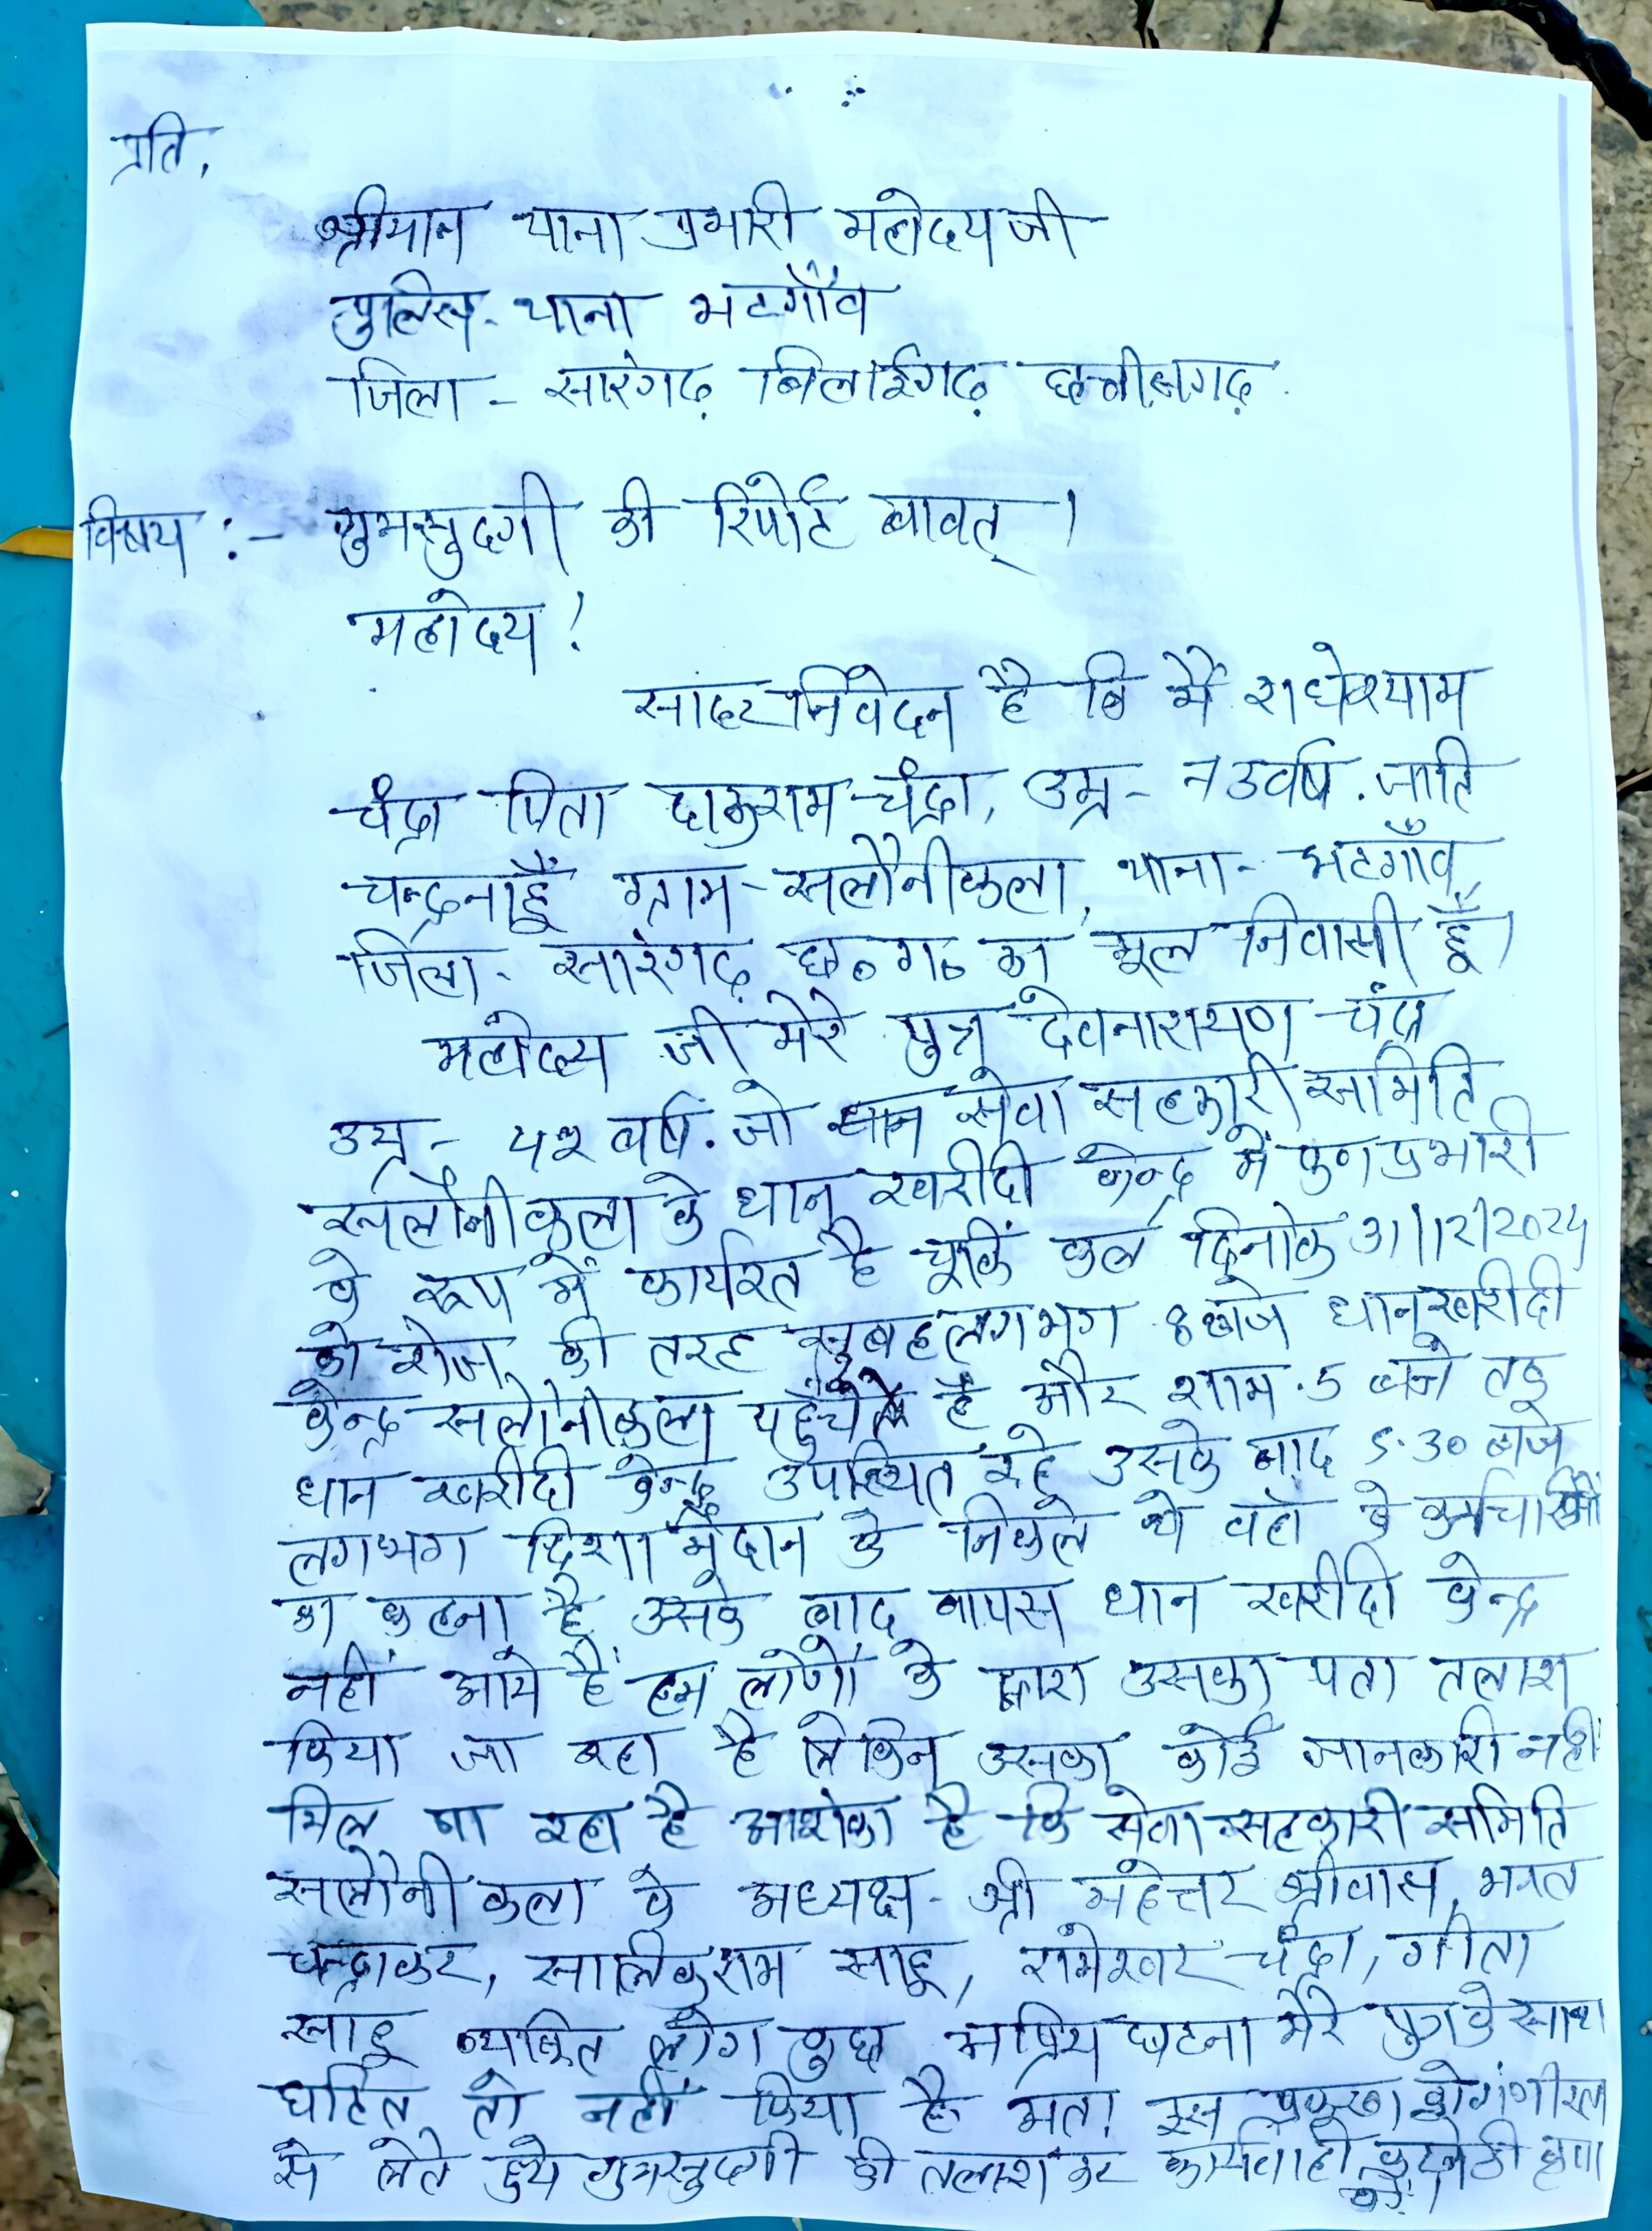 प्रति,
श्रीमान थाना प्रभारी महोदय जी
पुलिस- थाना भटगाँव
जिला - सारंगढ़ बिलाईगढ़ छत्तीसगढ़
विषय :- गुमसुदगी की रिर्पोट बावत् ।
महोदय !
सादर निवेदन है कि मैं राधेश्याम
चंद्रा पिता दाकुराम चंद्रा, उम्र - 73 वर्ष . जाति
चन्द्रनाहूँ ग्राम - सलौनीकला, थाना - भटगाँव,
जिला - सारंगढ़ छ०ग० का मूल निवासी हूँ।
महोदय जी मेरे पुत्र देवनारायण चंद्रा
उम्र - ४२ वर्ष. जो धान सेवा सहकारी समिति
सलौनीकला के धान खरीदी केन्द्र में प्रभारी
के रूप में कार्यरत है चूकिं कल दिनांक 31/12/2024
को रोज की तरह सुबह लगभग 8 बजे धान खरीदी
केन्द्र सलौनीकला पहुँचे है और शाम 5 बजे तक
धान खरीदी केन्द्र उपस्थित रहे उसके बाद 5.30 बजे
लगभग दिशा मैदान के निकले थे वहां के कर्मचारियों
का कहना है उसके बाद वापस धान खरीदी केन्द्र
नहीं आये हैं हम लोगों के द्वारा उसका पता तलाश
किया जा रहा है लेकिन उसका कोई जानकारी नहीं
मिल पा रहा है आशंका है कि सेवा सहकारी समिति
सलौनीकला के अध्यक्ष - श्री महेत्तर श्रीवास, भरत
चन्द्राकर, सालिकराम साहू, रामेश्वर चंद्रा, गीता
साहू व्यक्ति लोग कुछ अप्रिय घटना मेरे पुत्र के साथ
घटित तो नहीं किया है अतः इस को गंभीरता
से लेते हुये गुमसुदगी की तलाश कर कार्यवाही करने की कृपा
करें।